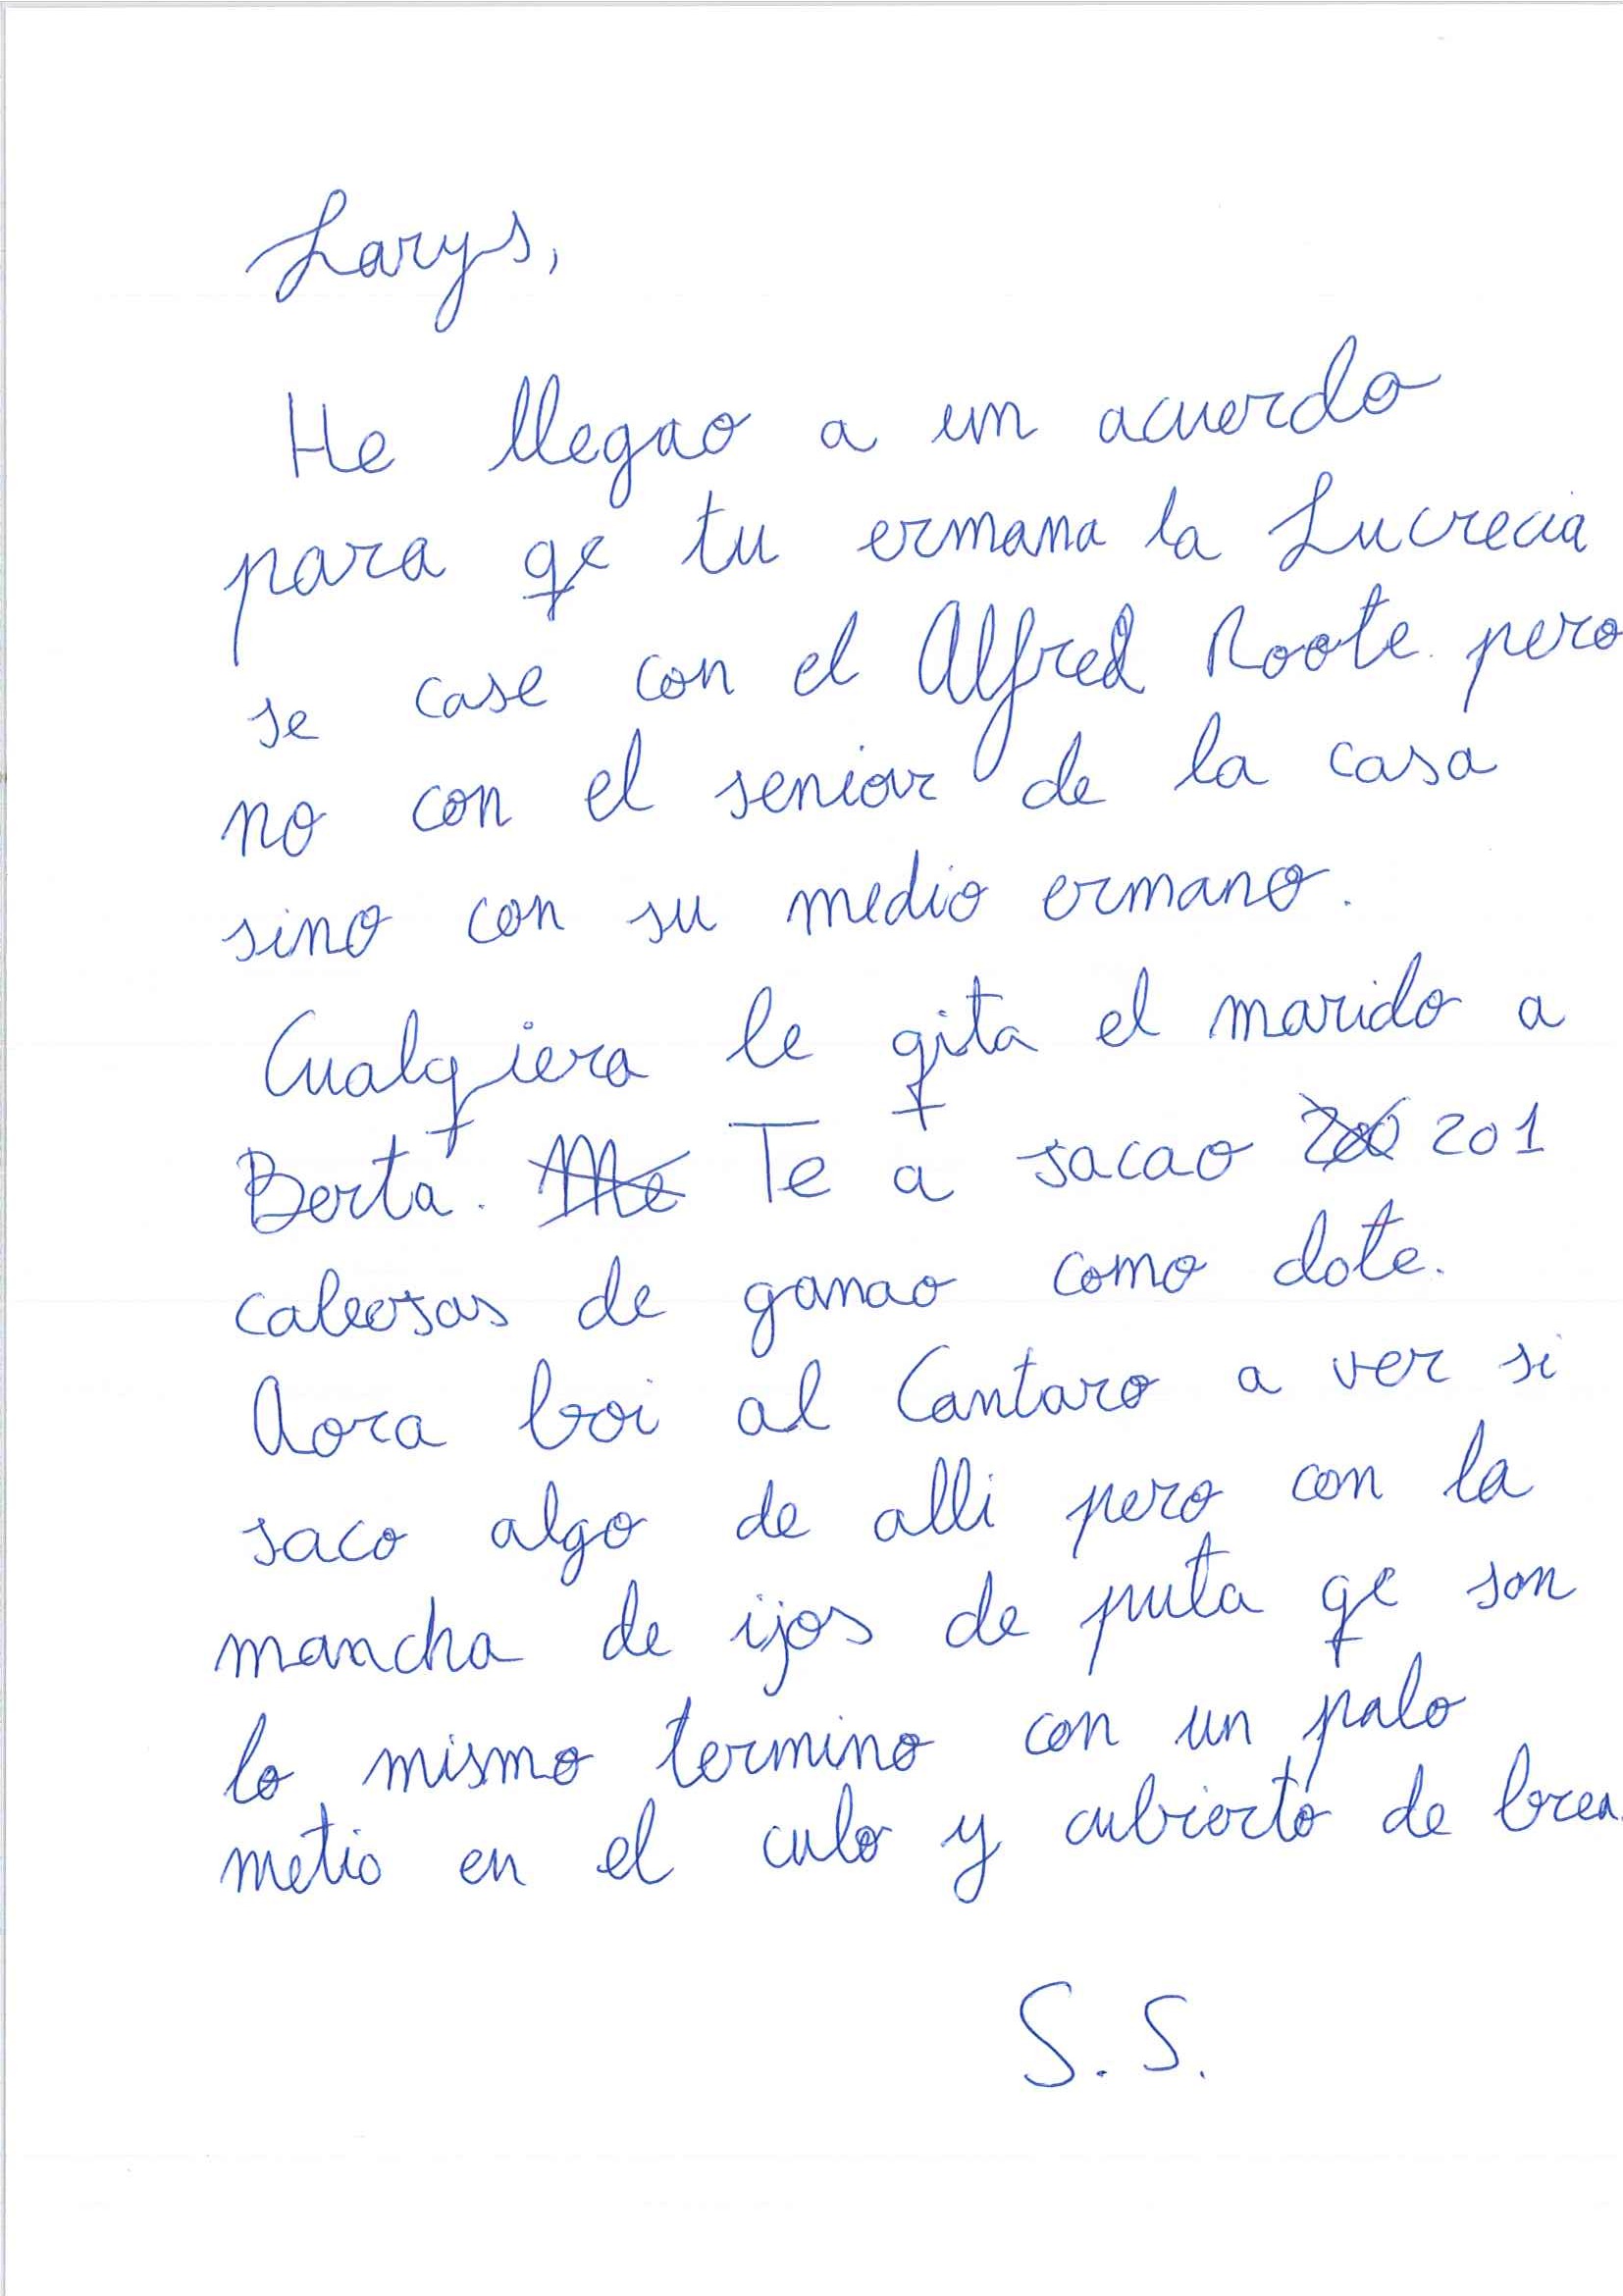 Larys,
He llegao a un acuerdo
para qe tu ermana la Lucrecia
se case con el Alfred Roote pero
no con el senior de la casa
sino con su medio ermano.
Cualqiera le qita el marido a
Berta. Me Te a sacao 200 201
cabesas de ganao como dote.
Aora boi al Cantaro a ver si
saco algo de alli pero con la
mancha de ijos de puta qe son
lo mismo termino con un palo
metio en el culo y cubierto de brea.
S. S.